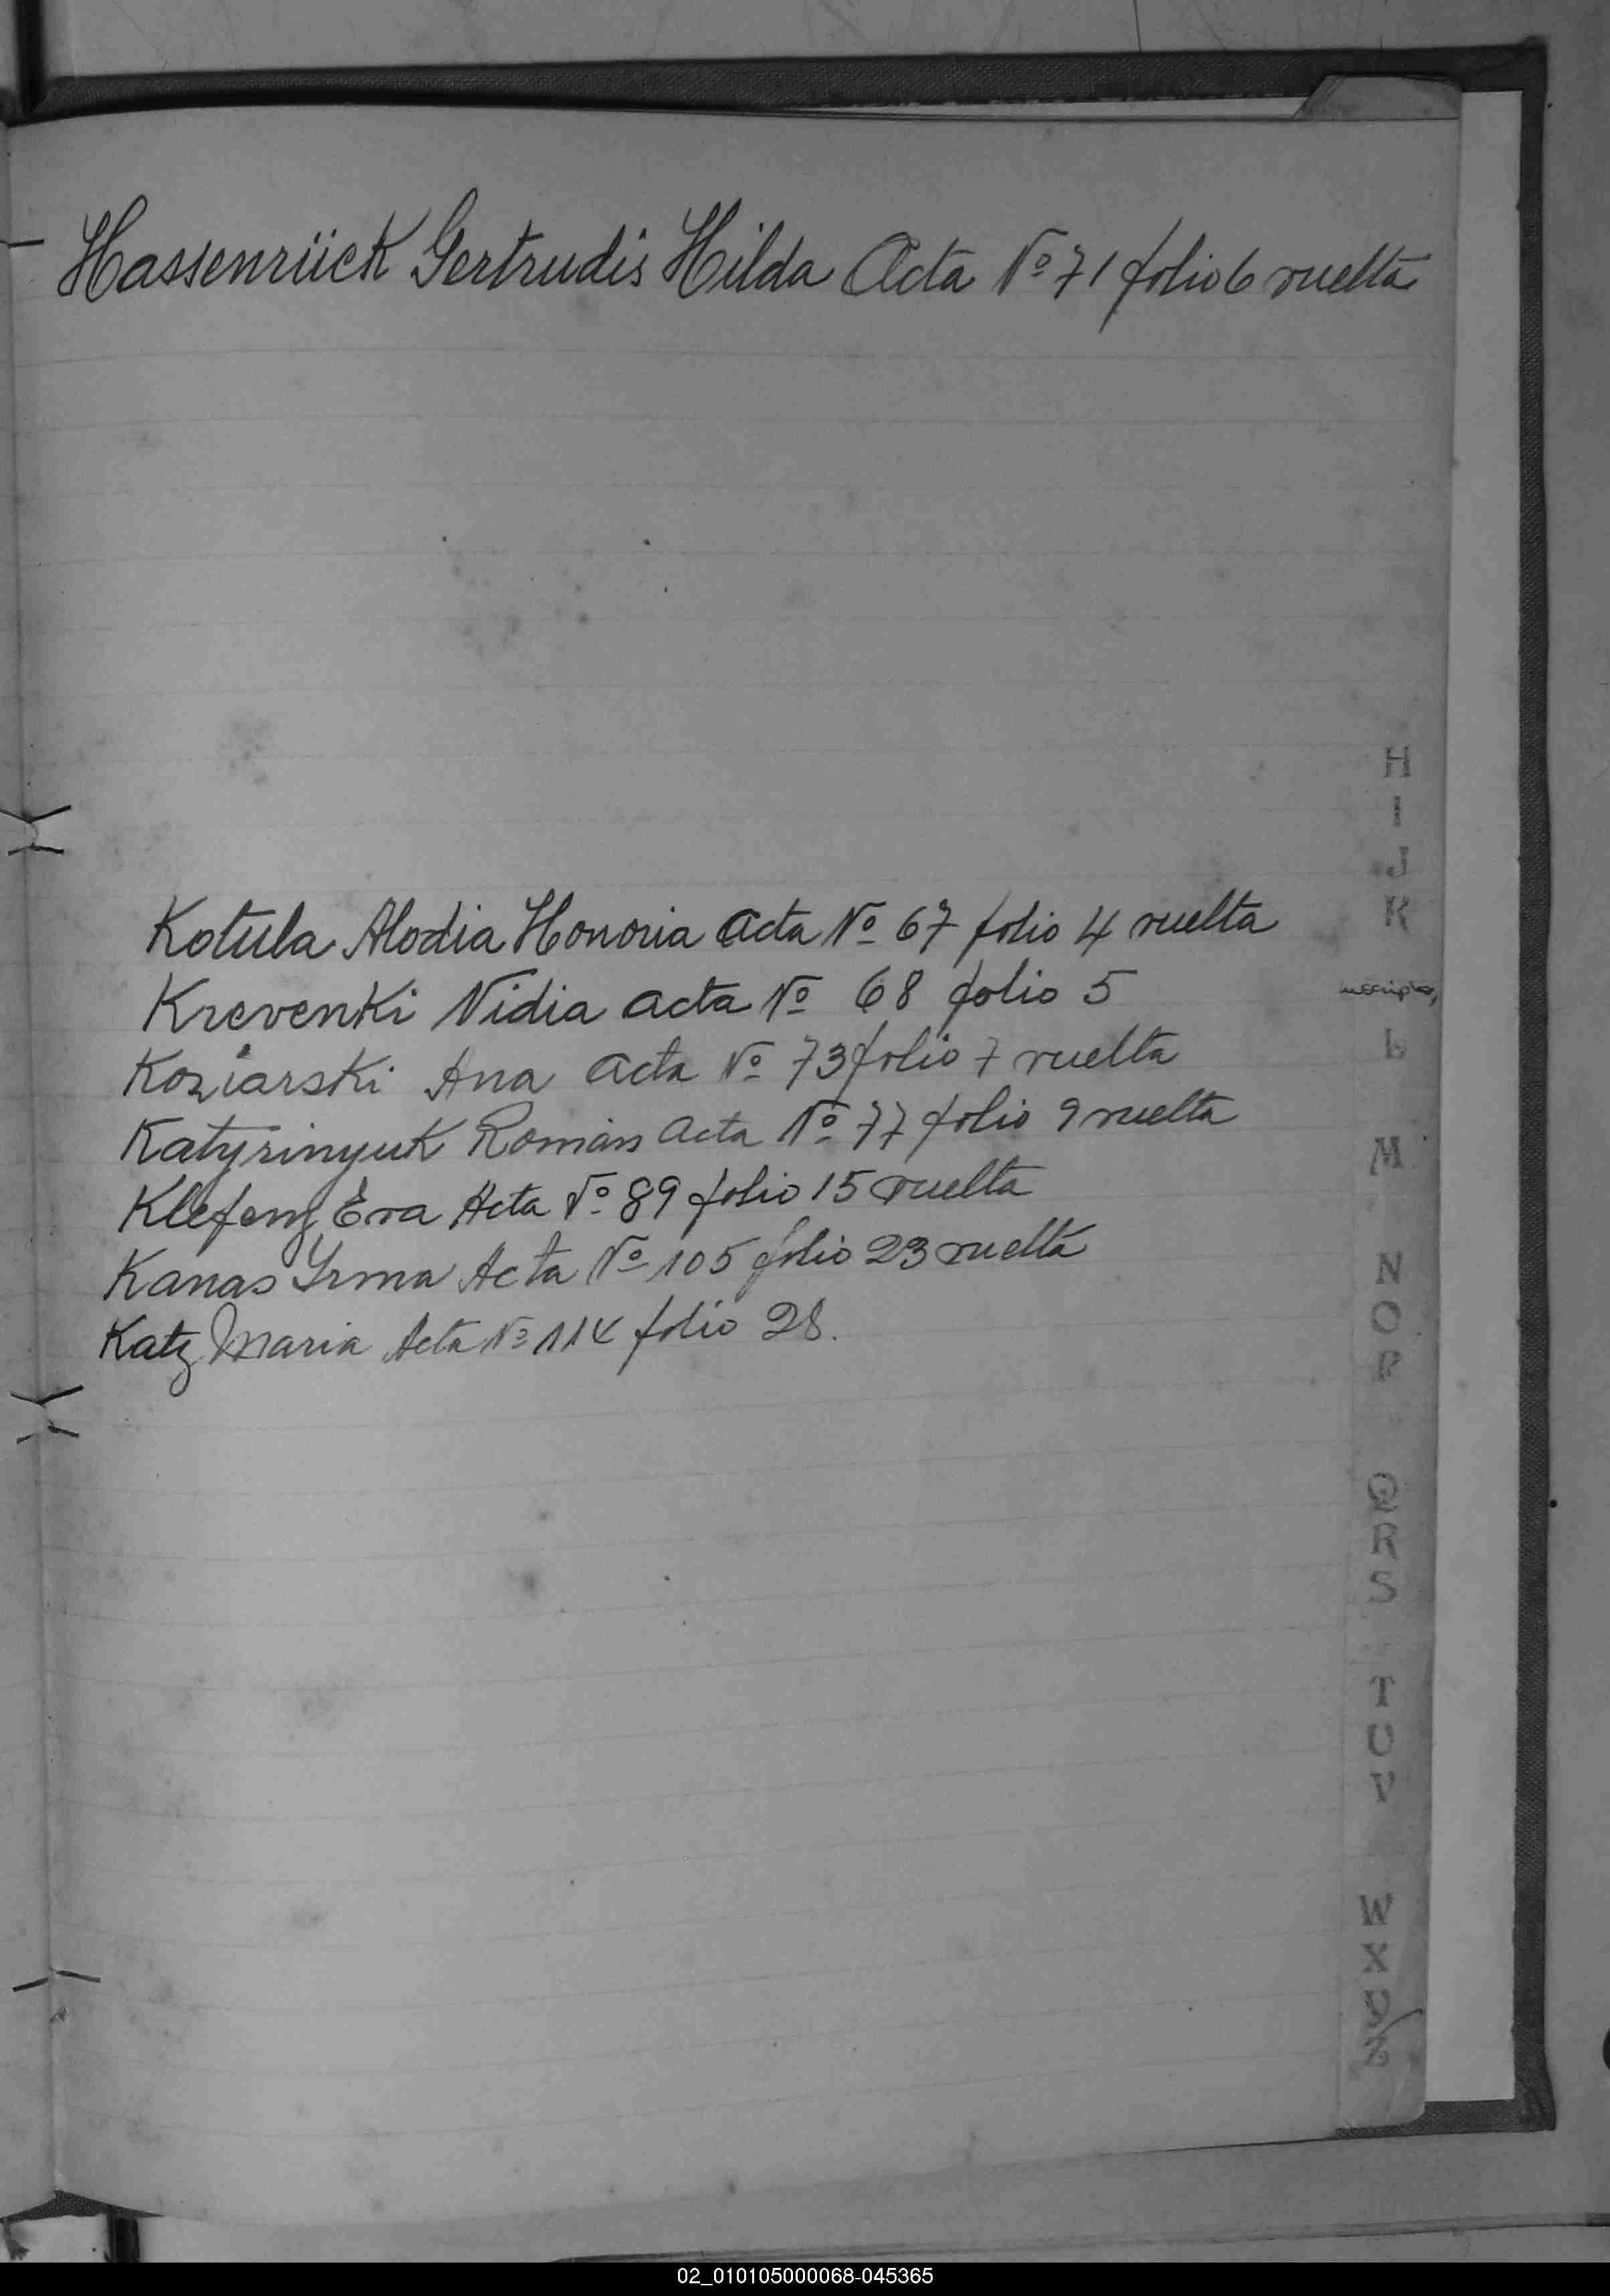 Hassenrück Gertrudis Hilda Acta Nº 71 folio 6 vuelta
Kotula Alodia Honoria acta Nº 67 folio 4 vuelta
Krevenki Nidia acta Nº 68 folio 5
Koziarski Ana acta Nº 73 folio 7 vuelta
Katyrinyuk Román acta Nº 77 folio 9 vuelta
Klefeng Eva Acta Nº 89 folio 15 vuelta
Kanas Yrma Acta Nº 105 folio 23 vuelta
Katz Maria Acta Nº 114 folio 28.
H
I
J
K
L
M
N
O
P
Q
R
S
T
U
V
W
X
Y
Z
02_010105000068-045365